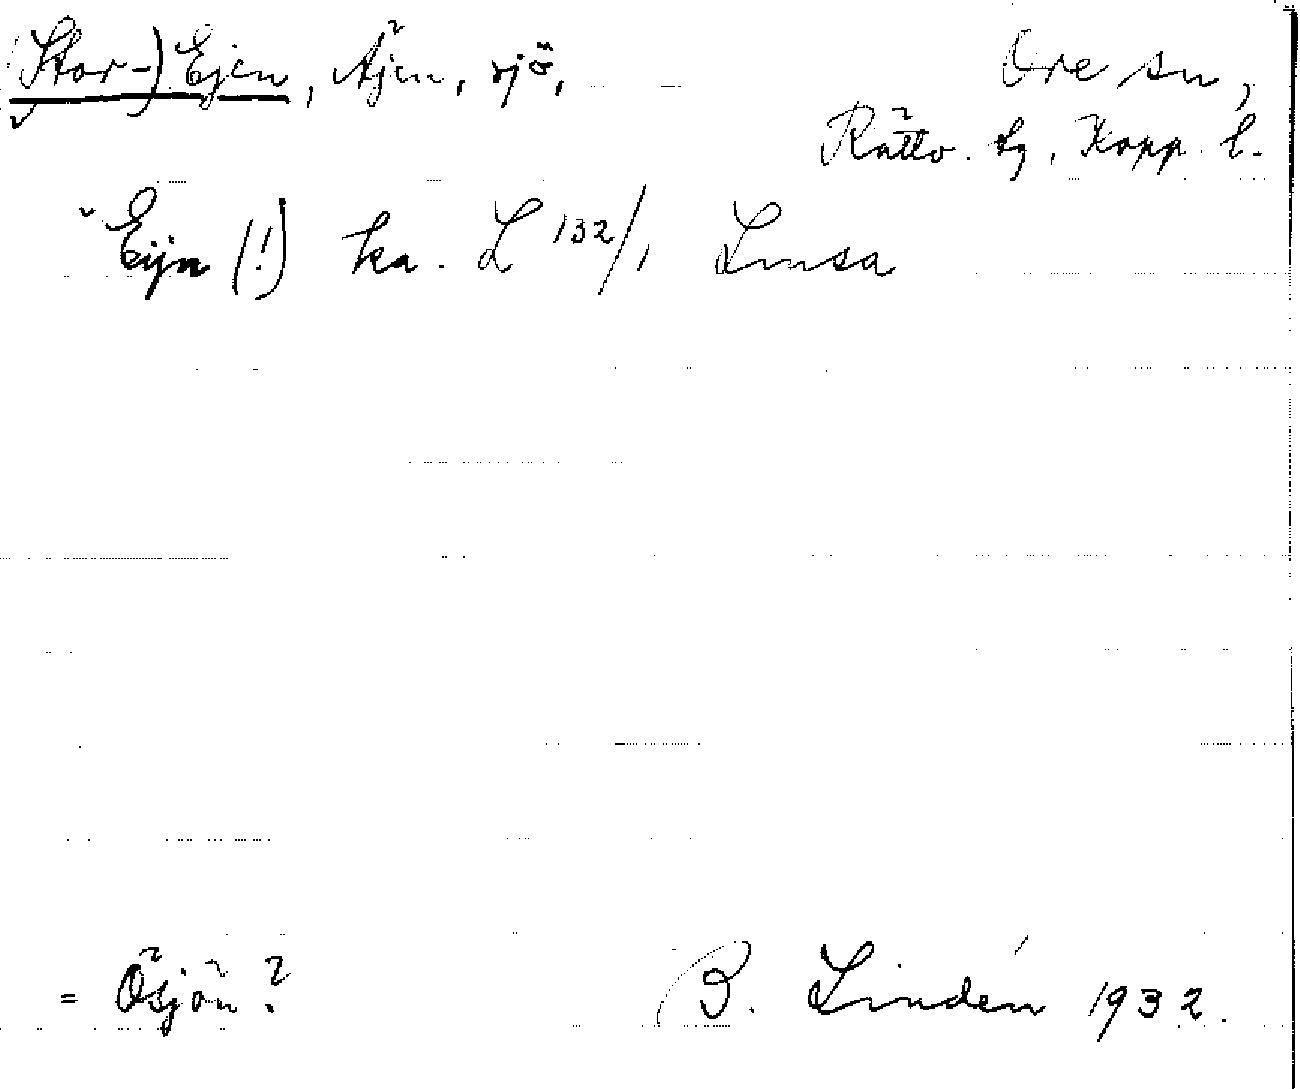 (Stor-) Ejen, Äjen, sjö, Ore sn,
Rättv. tg, Kopp. l.
Eijn (!) ka. L 132/1 Limsa
= Ösjön? B. Lindén 1932.